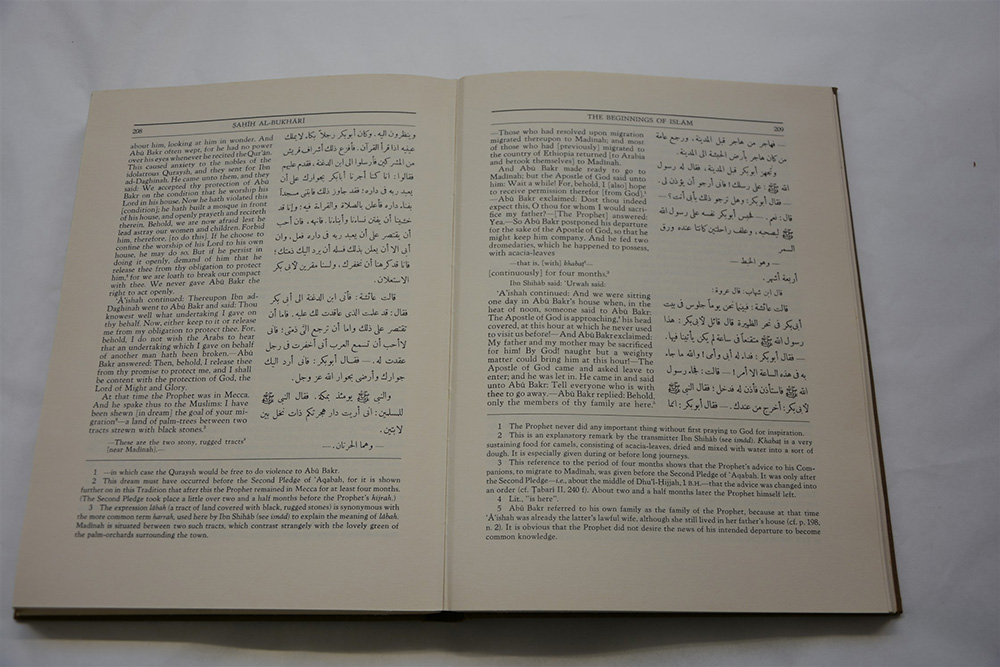 208
SAHĪH AL-BUKHĀRĪ
about him, looking at him in wonder. And
Abū Bakr often wept, for he had no power
over his eyes whenever he recited the Qur'ān.
This caused anxiety to the nobles of the
idolatrous Quraysh, and they sent for Ibn
ad-Daghinah. He came unto them, and they
said: We accepted thy protection of Abū
Bakr on the condition that he worship his
Lord in his house. Now he hath violated this
[condition]; he hath built a mosque in front
of his house, and openly prayeth and reciteth
therein. Behold, we are now afraid lest he
lead astray our women and children. Forbid
him, therefore, [to do this]. If he choose to
confine the worship of his Lord to his own
house, he may do so. But if he persist in
doing it openly, demand of him that he
release thee from thy obligation to protect
him, for we are loath to break our compact
with thee. We never gave Abū Bakr the
right to act openly.
'Ā'ishah continued: Thereupon Ibn ad-
Daghinah went to Abū Bakr and said: Thou
knowest well what undertaking I gave on
thy behalf. Now, either keep to it or release
me from my obligation to protect thee. For,
behold, I do not wish the Arabs to hear
that an undertaking which I gave on behalf
of another man hath been broken.—Abū
Bakr answered: Then, behold, I release thee
from thy promise to protect me, and I shall
be content with the protection of God, the
Lord of Might and Glory.
At that time the Prophet was in Mecca.
And he spake thus to the Muslims: I have
been shewn [in dream] the goal of your mi-
gration²—a land of palm-trees between two
tracts strewn with black stones.
—These are the two stony, rugged tracts³
[near Madīnah].—
وينظرون اليه. وكان أبوبكر رجلاً بكاء لايملك
عينيه اذا قرأ القرآن. فأفزع ذلك أشراف قريش
من المشركين فأرسلوا الى ابن الدغنة، فقدم عليهم
فقالوا: انا كنا أجرنا أبابكر بجوارك على أن
يعبد ربه فى داره؛ فقد جاوز ذلك فابتنى مسجداً
بفناء داره فأعلن بالصلاة والقراءة فيه؛ وإنا قد
خشينا أن يفتن نساءنا وأبناءنا. فانهه، فان أحب
أن يقتصر على أن يعبد ربه فى داره فعل، وان
أبى الا أن يعلن بذلك فسله أن يرد اليك ذمتك؛
فانا قدكرهنا أن نخفرك، ولسنا مقرين لابى بكر
الاستعلان.
قالت عائشة: فأتى ابن الدغنة الى أبى بكر
فقال: قد علمت الذى عاقدت لك عليه. فاما أن
تقتصر على ذلك واما أن ترجع الى ذمتى؛ فانى
لاأحب أن تسمع العرب أنى أخفرت فى رجل
عقدت له. — فقال أبوبكر: فانى أرد اليك
جوارك وأرضى بجوار الله عز وجل.
والنبى ﷺ يومئذ بمكة. فقال النبى ﷺ
للمسلمين: انى أريت دار هجرتكم ذات نخل بين
لابتين.
— وهما الحرتان. —
1 —in which case the Quraysh would be free to do violence to Abū Bakr.
2 This dream must have occurred before the Second Pledge of 'Aqabah, for it is shown
further on in this Tradition that after this the Prophet remained in Mecca for at least four months.
(The Second Pledge took place a little over two and a half months before the Prophet's hijrah.)
3 The expression lābah (a tract of land covered with black, rugged stones) is synonymous with
the more common term harrah, used here by Ibn Shihāb (see imdd) to explain the meaning of lābah.
Madīnah is situated between two such tracts, which contrast strangely with the lovely green of
the palm-orchards surrounding the town.
THE BEGINNINGS OF ISLAM
209
—Those who had resolved upon migration
migrated thereupon to Madīnah; and most
of those who had [previously] migrated to
the country of Ethiopia returned [to Arabia
and betook themselves] to Madīnah.
And Abū Bakr made ready to go to
Madīnah; but the Apostle of God said unto
him: Wait a while! For, behold, I [also] hope
to receive permission therefor [from God].¹
—Abū Bakr exclaimed: Dost thou indeed
expect this, O thou for whom I would sacri-
fice my father?—[The Prophet] answered:
Yea.—So Abū Bakr postponed his departure
for the sake of the Apostle of God, so that he
might keep him company. And he fed two
dromedaries, which he happened to possess,
with acacia-leaves
—that is, [with] khabat²—
[continuously] for four months.³
Ibn Shihāb said: 'Urwah said:
'Ā'ishah continued: And we were sitting
one day in Abū Bakr's house when, in the
heat of noon, someone said to Abū Bakr:
The Apostle of God is approaching,⁴ his head
covered, at this hour at which he never used
to visit us before!—And Abū Bakr exclaimed:
My father and my mother may be sacrificed
for him! By God! naught but a weighty
matter could bring him at this hour!—The
Apostle of God came and asked leave to
enter; and he was let in. He came in and said
unto Abū Bakr: Tell everyone who is with
thee to go away.—Abū Bakr replied: Behold,
only the members of thy family are here.⁵
— فهاجر من هاجر قبل المدينة، ورجع عامة
من كان هاجر بأرض الحبشة الى المدينة.
وتجهز أبوبكر قبل المدينة، فقال له رسول
الله ﷺ: على رسلك! فانى أرجو أن يؤذن لى.
— فقال أبوبكر: وهل ترجو ذلك بأبى أنت؟ —
قال: نعم. — فحبس أبوبكر نفسه على رسول الله
ﷺ ليصحبه، وعلف راحلتين كانتا عنده ورق
السمر
— وهو الخبط —
أربعة أشهر.
قال ابن شهاب: قال عروة:
قالت عائشة: فبينما نحن يوماً جلوس فى بيت
أبى بكر فى نحر الظهيرة قال قائل لأبى بكر: هذا
رسول الله ﷺ متقنعاً فى ساعة لم يكن يأتينا فيها.
— فقال أبوبكر: فداء له أبى وأمى! والله ما جاء
به فى هذه الساعة الا أمر! — قالت: فجاء رسول
الله ﷺ فاستأذن فأذن له فدخل؛ فقال النبى ﷺ
لابى بكر: أخرج من عندك. — فقال أبوبكر: انما
1 The Prophet never did any important thing without first praying to God for inspiration.
2 This is an explanatory remark by the transmitter Ibn Shihāb (see imdd). Khabat is a very
sustaining food for camels, consisting of acacia-leaves, dried and mixed with water into a sort of
dough. It is especially given during or before long journeys.
3 This reference to the period of four months shows that the Prophet's advice to his Com-
panions, to migrate to Madīnah, was given before the Second Pledge of 'Aqabah. It was only after
the Second Pledge—i.e., about the middle of Dhu'l-Hijjah, 1 B.H.—that the advice was changed into
an order (cf. Tabarī II, 240 f). About two and a half months later the Prophet himself left.
4 Lit., "is here".
5 Abū Bakr referred to his own family as the family of the Prophet, because at that time
'Ā'ishah was already the latter's lawful wife, although she still lived in her father's house (cf. p. 198,
n. 2). It is obvious that the Prophet did not desire the news of his intended departure to become
common knowledge.